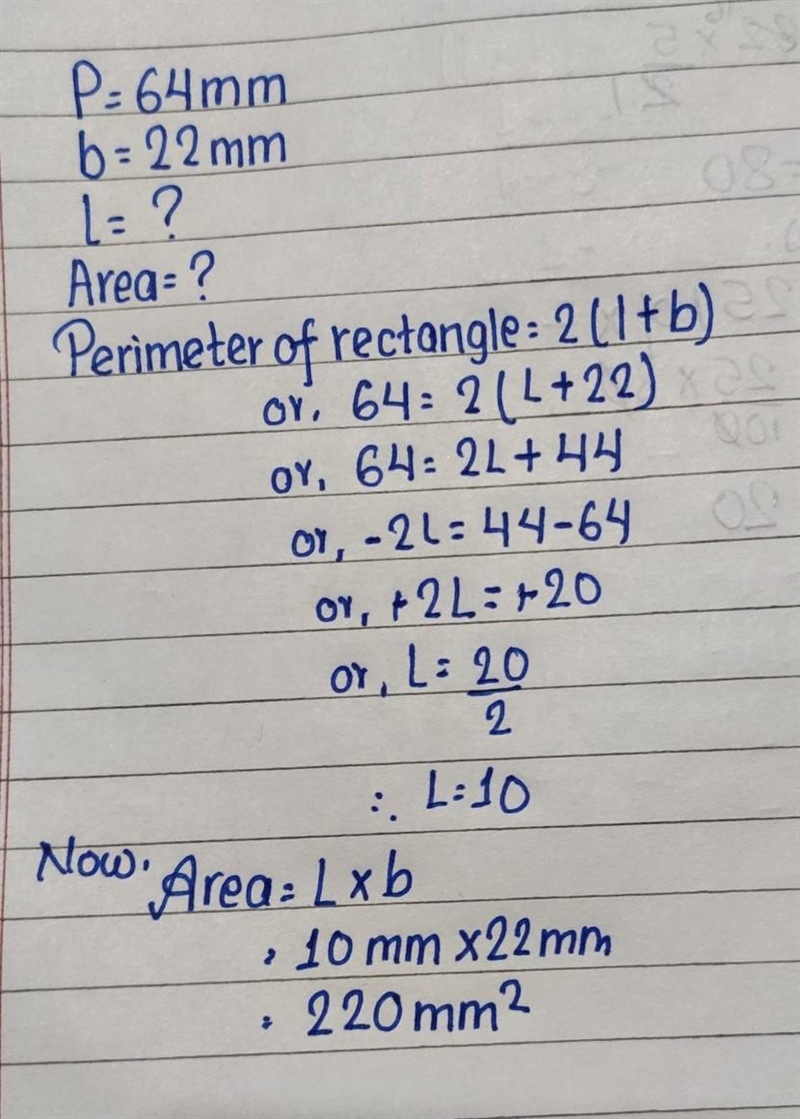 P= 64mm
b= 22mm
l= ?
Area= ?
Perimeter of rectangle= 2(l+b)
or, 64= 2(L+22)
or, 64= 2L+44
or, -2L= 44-64
or, +2L= +20
or, L= 20/2
∴ L=10
Now. Area= L×b
= 10mm×22mm
= 220mm²